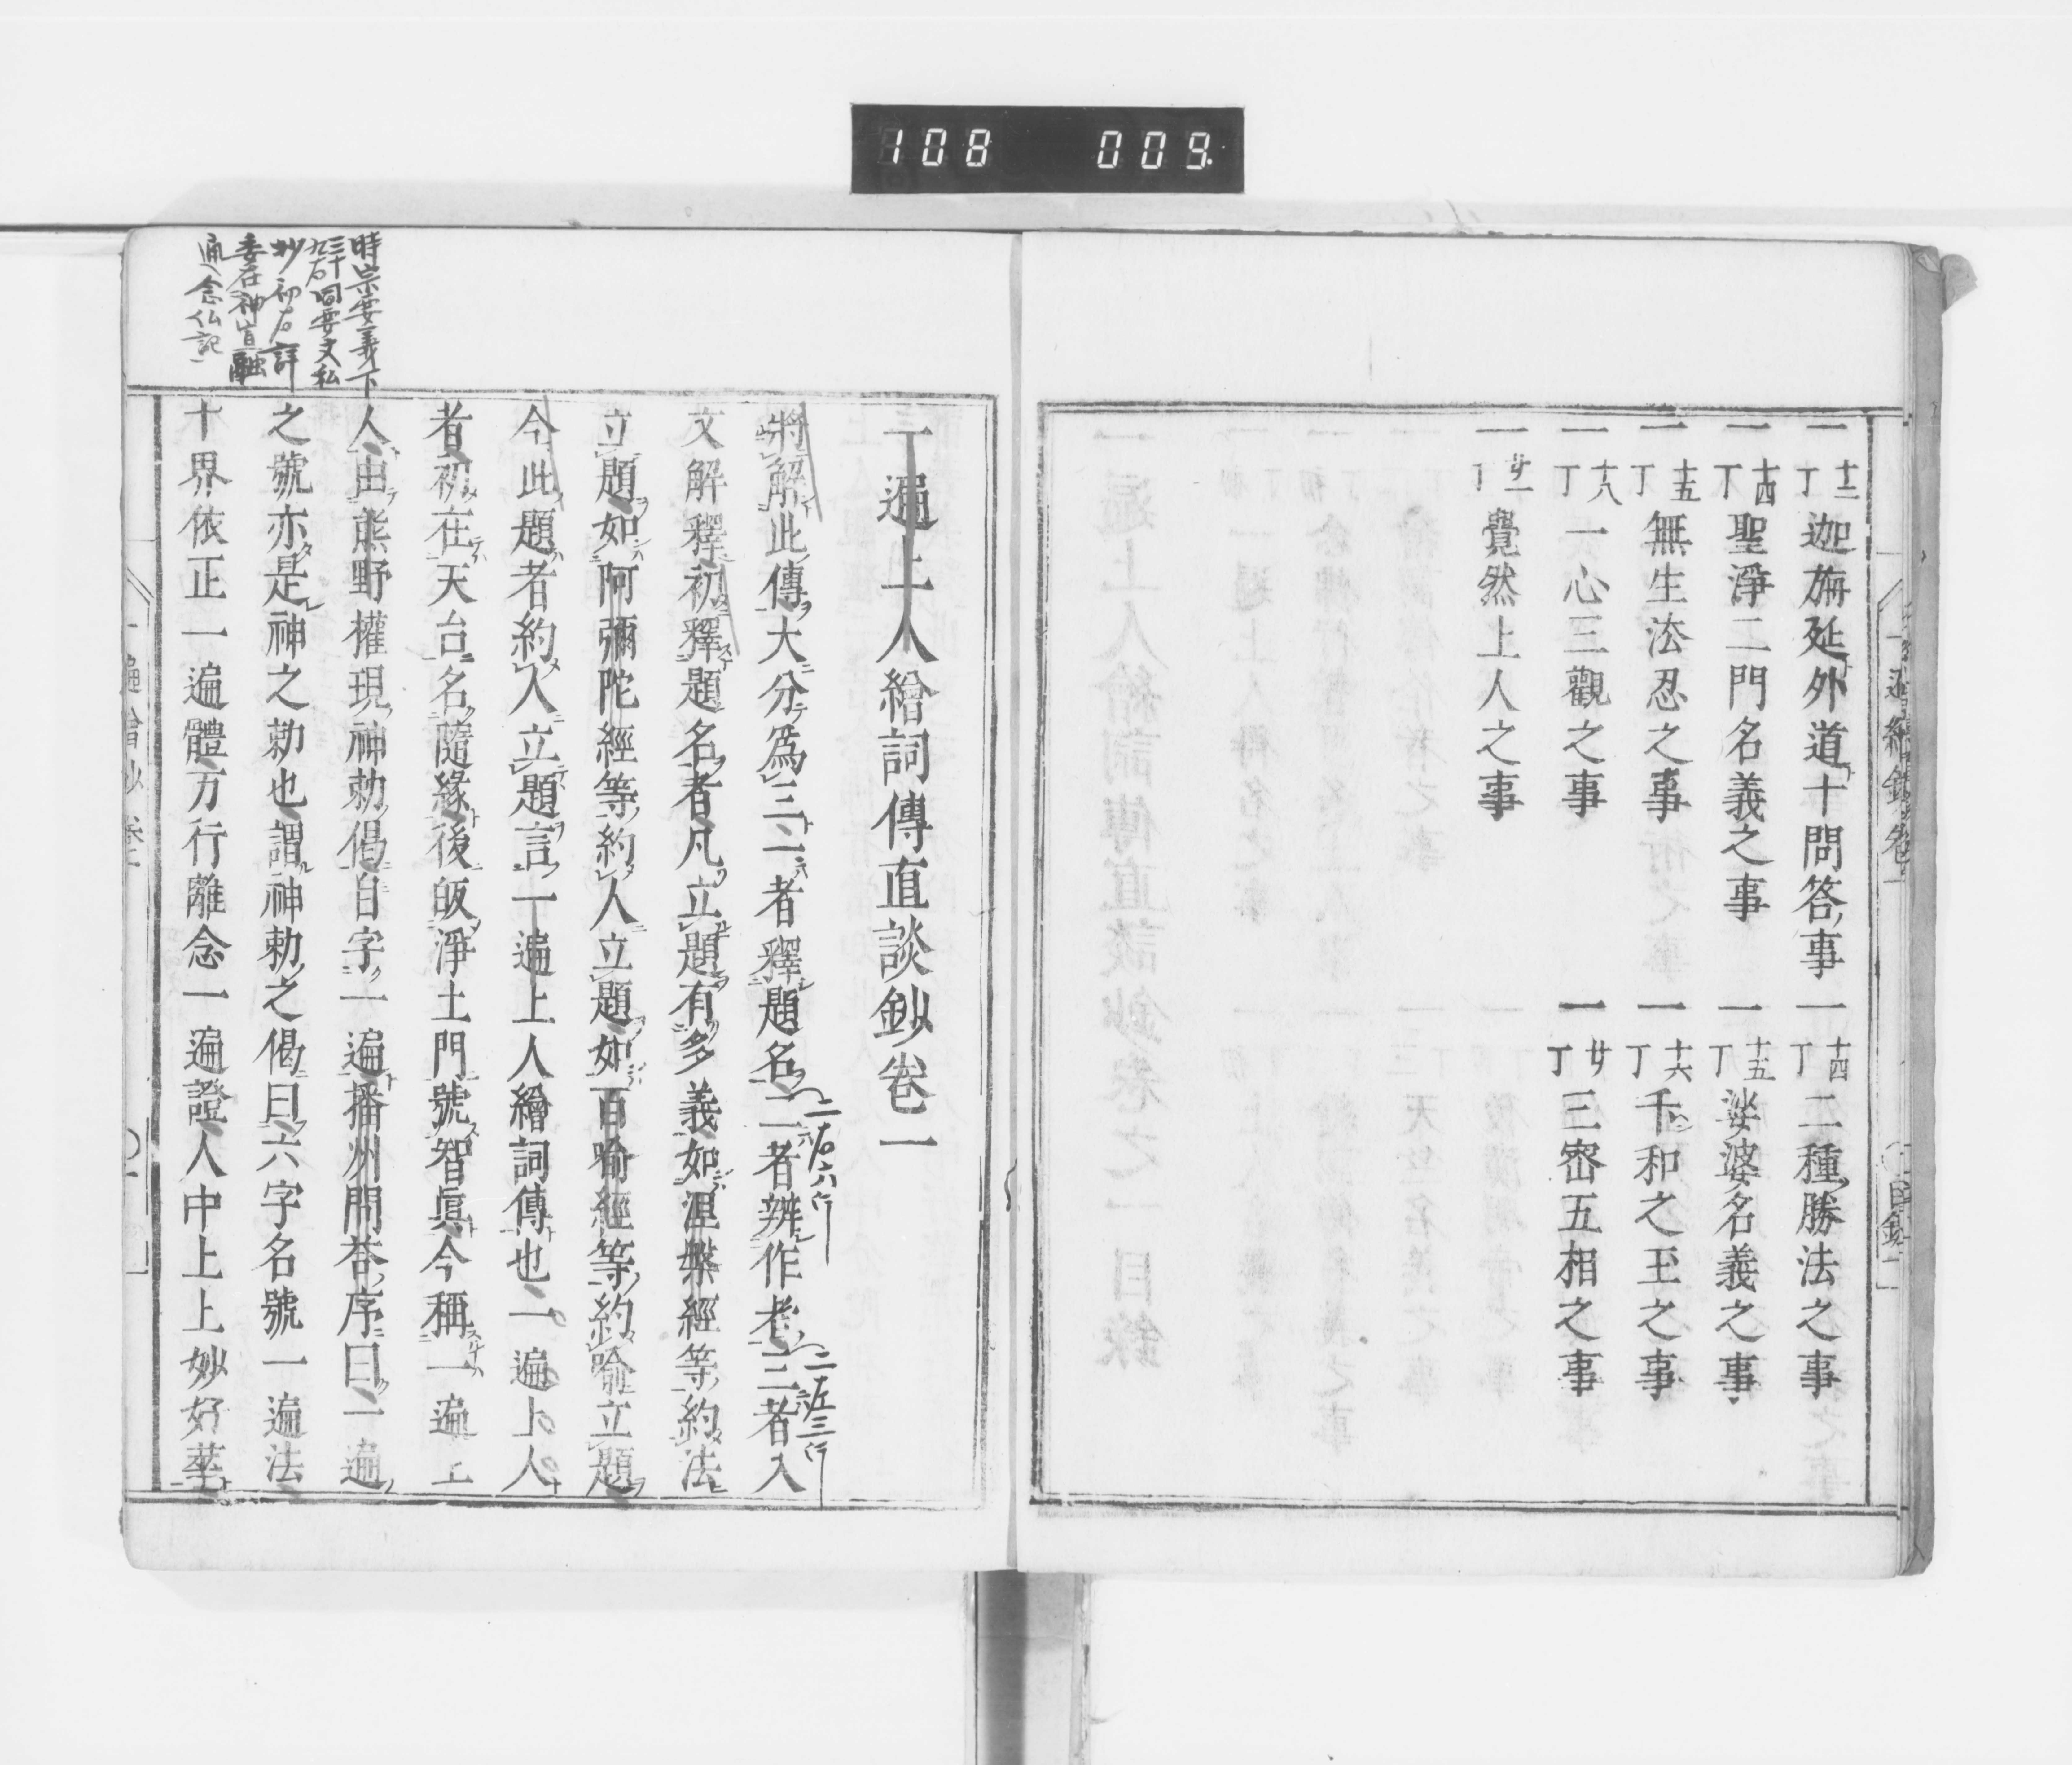 108 009
一 十二丁 迦旃延外道十問答ノ事
一 十四丁 二種勝法之事
一 十四丁 聖淨二門名義之事
一 十五丁 娑婆名義之事
一 十五丁 無生法忍之事
一 十六丁 千和之王之事
一 十八丁 一心三觀之事
一 廿丁 三密五相之事
一 廿一丁 覺然上人之事
一遍上人繪詞傳直談鈔卷一
將解此傳大分爲三一者釋題名二者辨作者三者入
文解釋初釋題名者凡立題有多義如涅槃經等約法
立題如阿彌陀經等約人立題如百喻經等約喻立題
今此題者約人立題言一遍上人繪詞傳也一遍上人
者初在天台名隨緣後皈淨土門號智眞今稱一遍上
人由熊野權現神勅偈自字一遍播州問荅序曰一遍
之號亦是神之勅也謂神勅之偈曰六字名號一遍法
十界依正一遍體万行離念一遍證人中上上妙好華
時宗要義下
三十九右同要文私
抄初右詳
委在神宣融
通念仏記